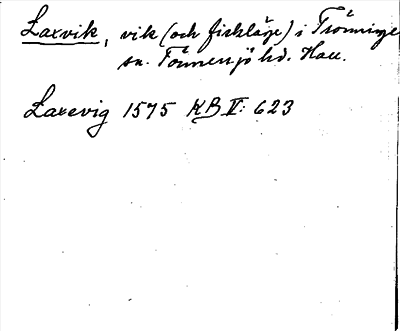 Laxvik, vik (och fiskläge) i Trönninge
sn. Tönnersjö hd. Hall.
Laxevig 1575 KB II: 623